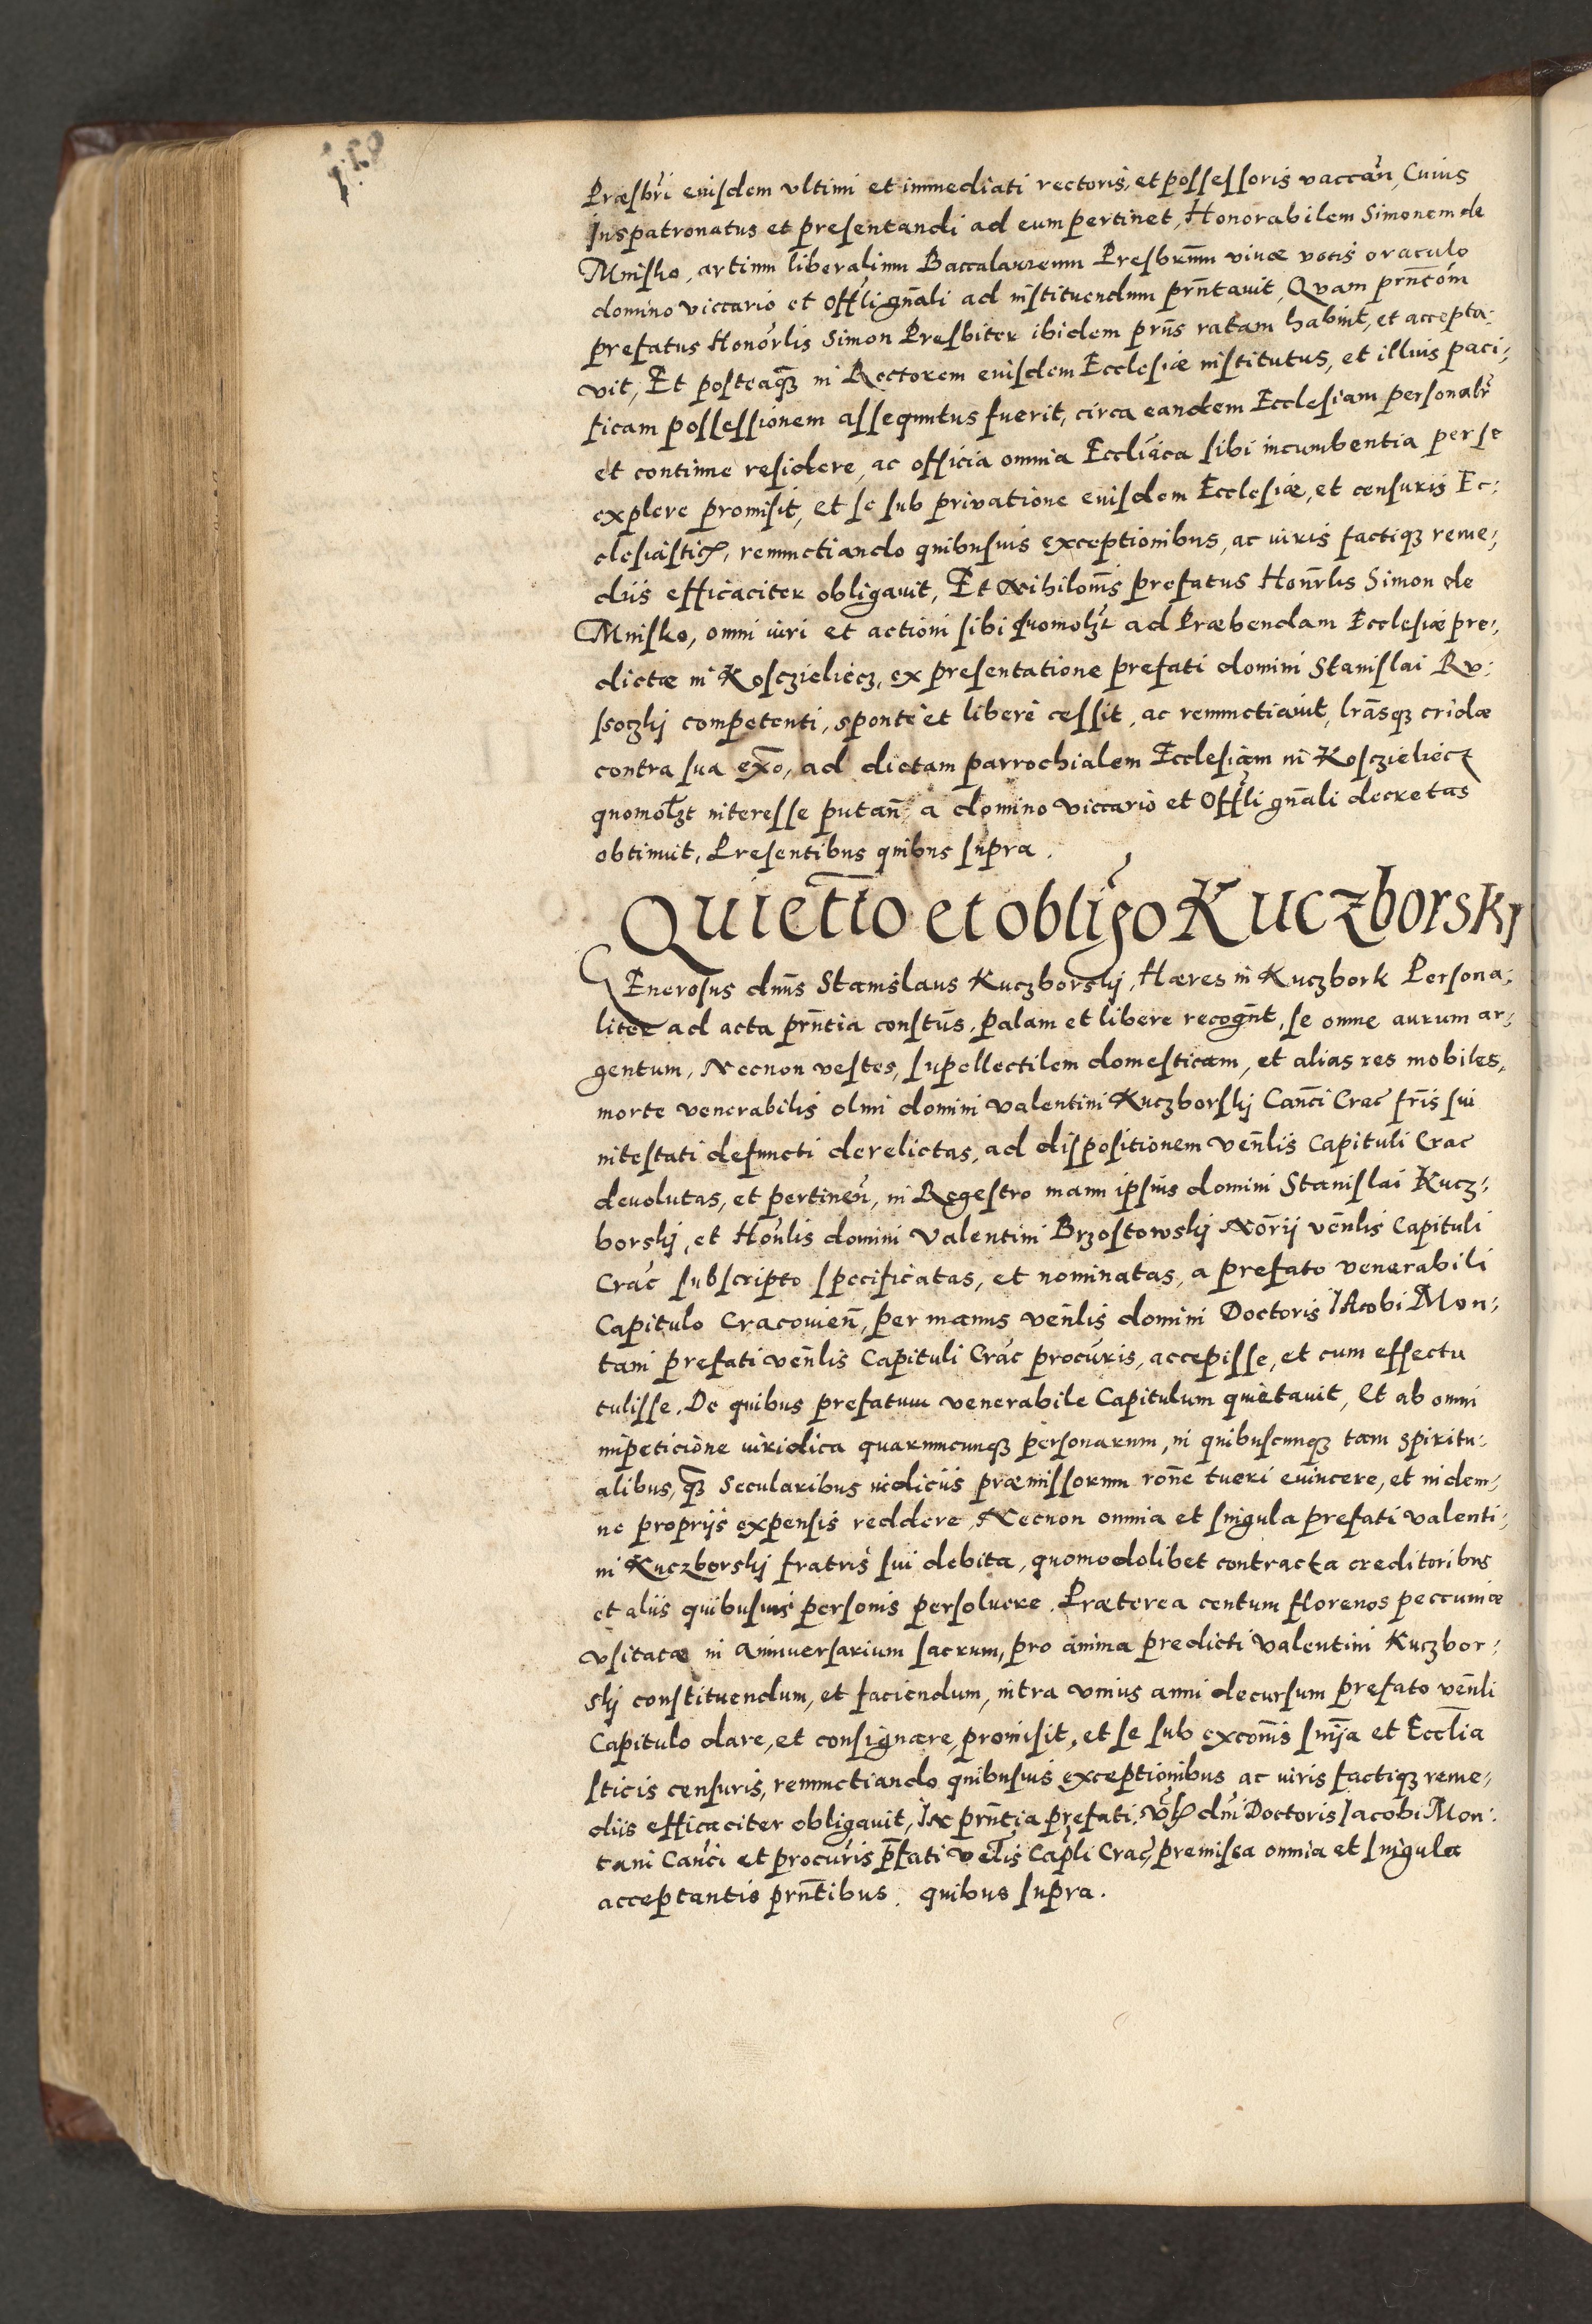 Præsbri eiusdem vltimi et immediati rectoris, et possessoris vaccan̄, Cuius
Iuspatronatus et presentandi ad eum pertinet, Honorabilem Simonem de
Mnisko, artium liberalium Baccalaureum Presbrum viuæ vocis oraculo
domino viccario et Offli gn̄ali ad instituendum prn̄tauit, Quam prn̄tom
prefatus Honorlis Simon Presbiter ibidem prn̄s ratam habuit, et accepta:
vit, Et posteaq̄ȝ in Rectorem eiusdem Ecclesiæ institutus, et illius paci:
ficam possessionem assequutus fuerit, circa eandem Ecclesiam personalr
et continue residere, ac officia omnia Eccliāca sibi incumbentia per se
explere promisit, et se sub priuatione eiusdem Ecclesiæ, et censuris Ec:
clesiastic̃, renunctiando quibusuis exceptionibus, ac iuris factiqȝ reme:
diis efficaciter obligauit, Et Nihilom̄s prefatus Honrlis Simon de
Mnisko, omni iuri et actioni sibi quomolȝt ad Præbendam Ecclesiæ pre:
dictæ in Kosczieliecz, ex presentatione prefati domini Stanislai Ru:
soczkj competenti, sponte et libere cessit, ac renunctiauit, lrasqȝ cridæ
contra sua exo, ad dictam parrochialem Ecclesiam in Kosczieliecz
quomolȝt interesse putan̄ a domino viccario et Offli gn̄ali decretas
obtinuit, Presentibus quibus supra.
Quietio et obligo Kuczborskj
GEnerosus dnn̄s Stanislaus Kuczborskj, Hæres in Kuczbork Persona:
liter ad acta prn̄tia constus, palam et libere recogn̄t, se omne aurum ar:
gentum, Necnon vestes, supellectilem domesticam, et alias res mobiles,
morte venerabilis olim domini Valentini Kuczborskj Canci Crac fris sui
intestati defuncti derelictas, ad dispositionem venlis Capituli Crac
deuolutas, et pertinen̄, in Regestro manu ipsius domini Stanislai Kucz:
borskj, et Honlis domini Valentini Brzostowskj Norij venlis Capituli
Crac subscripto specificatas, et nominatas, a prefato venerabili
Capitulo Cracouien̄, per manus venlis domini Doctoris Iacobi Mon:
tani prefati venlis Capituli Crac procuris, accepisse, et cum effectu
tulisse. De quibus prefatum venerabile Capitulum quietauit, Et ab omni
impeticione iuridica quarumcunqȝ personarum, in quibuscunqȝ tam spiritu:
alibus, q̄ȝ Secularibus iudiciis præmissorum rone tueri euincere, et indem:
ne proprijs expensis reddere, Necnon omnia et singula prefati Valenti:
ni Kuczborskj fratris sui debita, quomodolibet contracta creditoribus
et aliis quibusuis personis persoluere. Præterea centum florenos peccuniæ
vsitatæ in Anniuersarium sacrum, pro anima predicti Valentini Kuczbor:
skj constituendum, et faciendum, intra vnius anni decursum prefato venli
Capitulo dare, et consignare, promisit, et se sub excomis snīja et Ecclia
sticis censuris, renunctiando quibusuis exceptionibus ac iuris factiqȝ reme:
diis efficaciter obligauit, In prn̄tia prefati dni Doctoris Iacobi Mon:
tani Canci et procuris prfati velis Capli Crac, premissa omnia et singula
acceptantis prn̄tibus quibus supra.